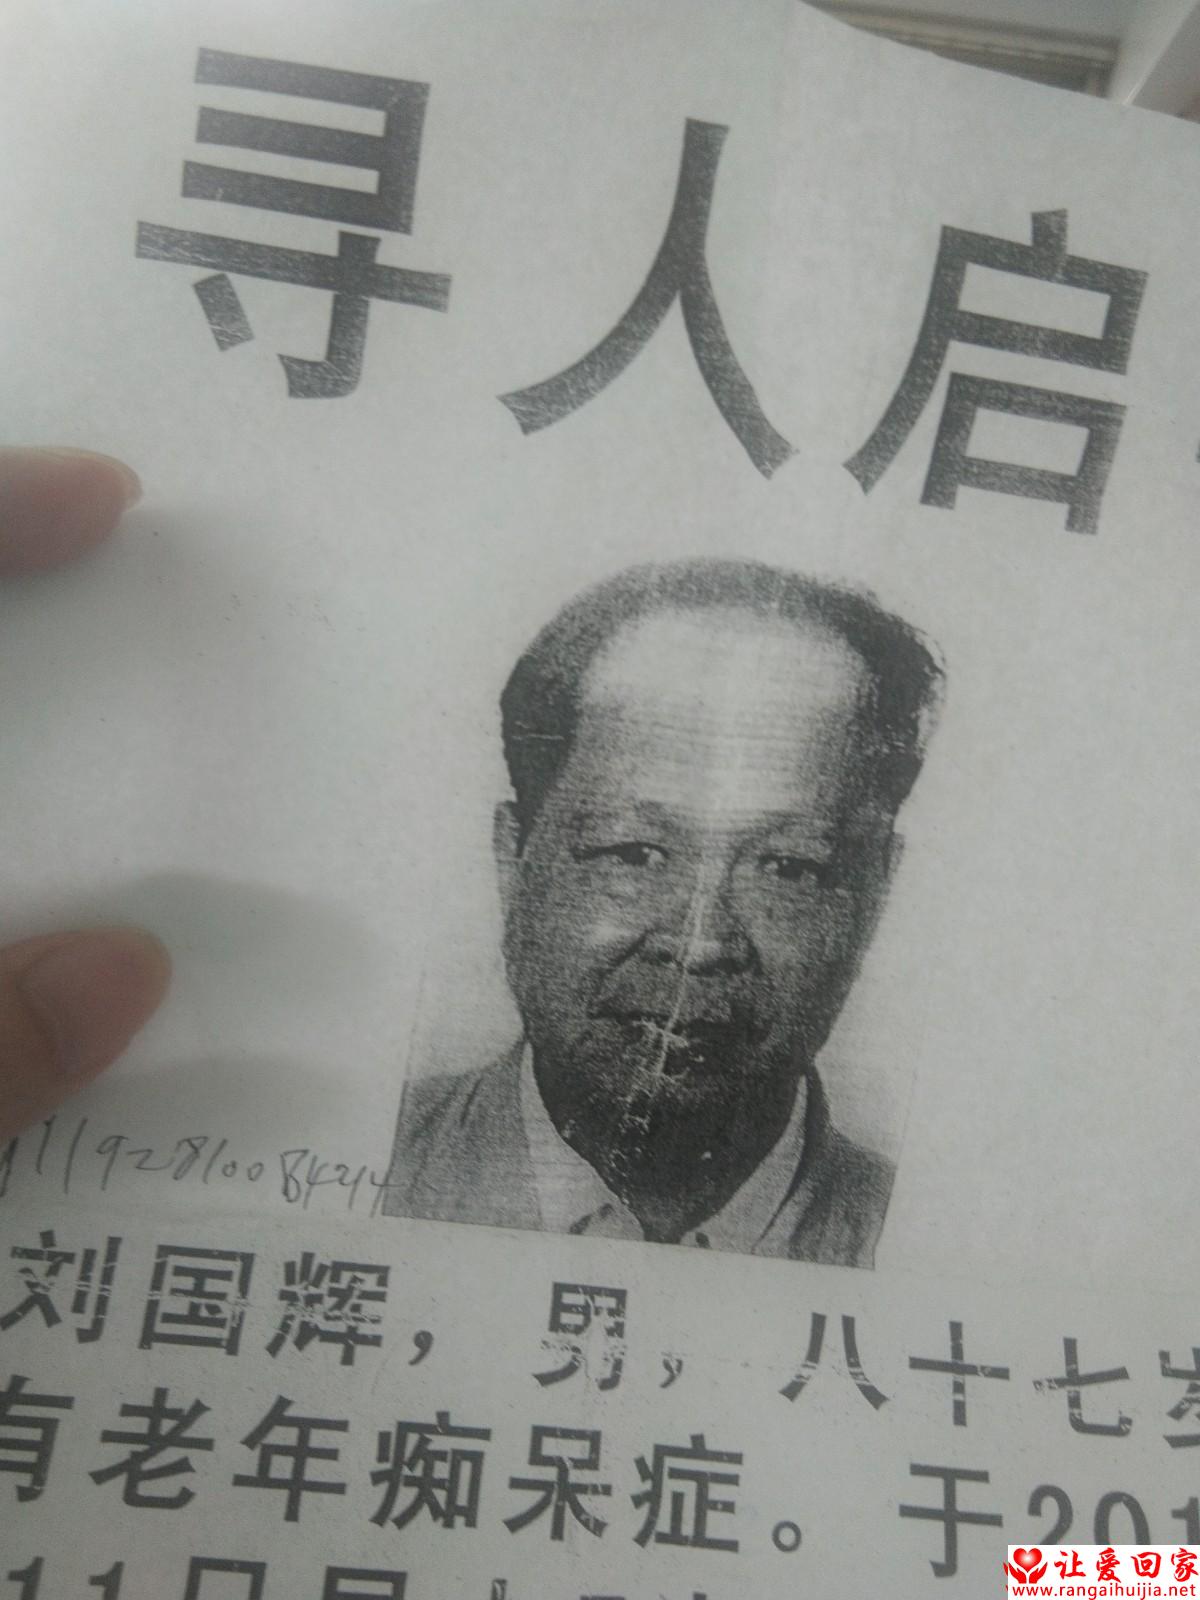 寻人启
刘国辉，男，八十七岁
有老年痴呆症。于201
11日
让爱回家
www.rangaihuijia.net